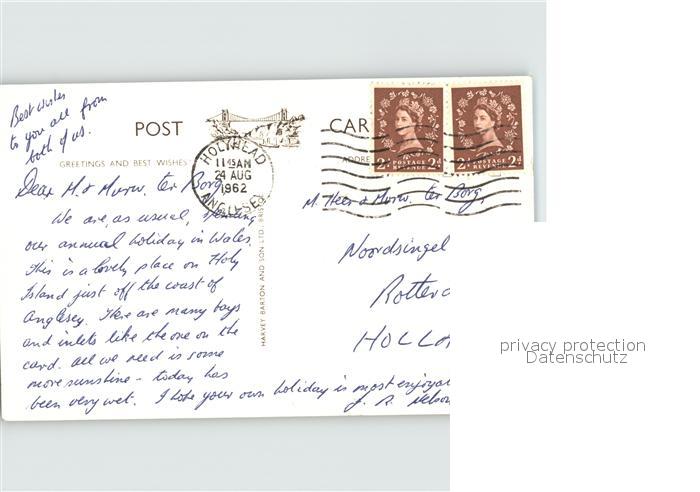 Best wishes
to you all from
both of us.
POST CAR
GREETINGS AND BEST WISHES
ADDRE
HOLYHEAD
11 45 AM
24 AUG
1962
ANGLESEY
POSTAGE REVENUE 2d
POSTAGE REVENUE 2d
Dear M. & Mvrw. ter Borg,
We are, as usual, spending
our annual holiday in Wales.
This is a lovely place on Holy
Island just off the coast of
Anglesey. There are many bays
and inlets like the one on the
card. All we need is some
more sunshine - today has
been very wet. I hope your own holiday is most enjoya
J. R. Nelson
HARVEY BARTON AND SON LTD. BRIS
M. Heer & Mvrw. ter Borg,
Noordsingel
Rotter
HOLLA
privacy protection
Datenschutz